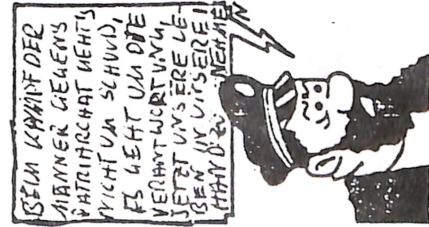 BEIM KAMPF DER
MÄNNER GEGENS
PATRIARCHAT GEHT'S
NICHT UM SCHULD,
ES GEHT UM DIE
VERANTWORTUNG,
JETZT UNSERE LE-
BEN IN UNSERE
HAND ZU NEHMEN